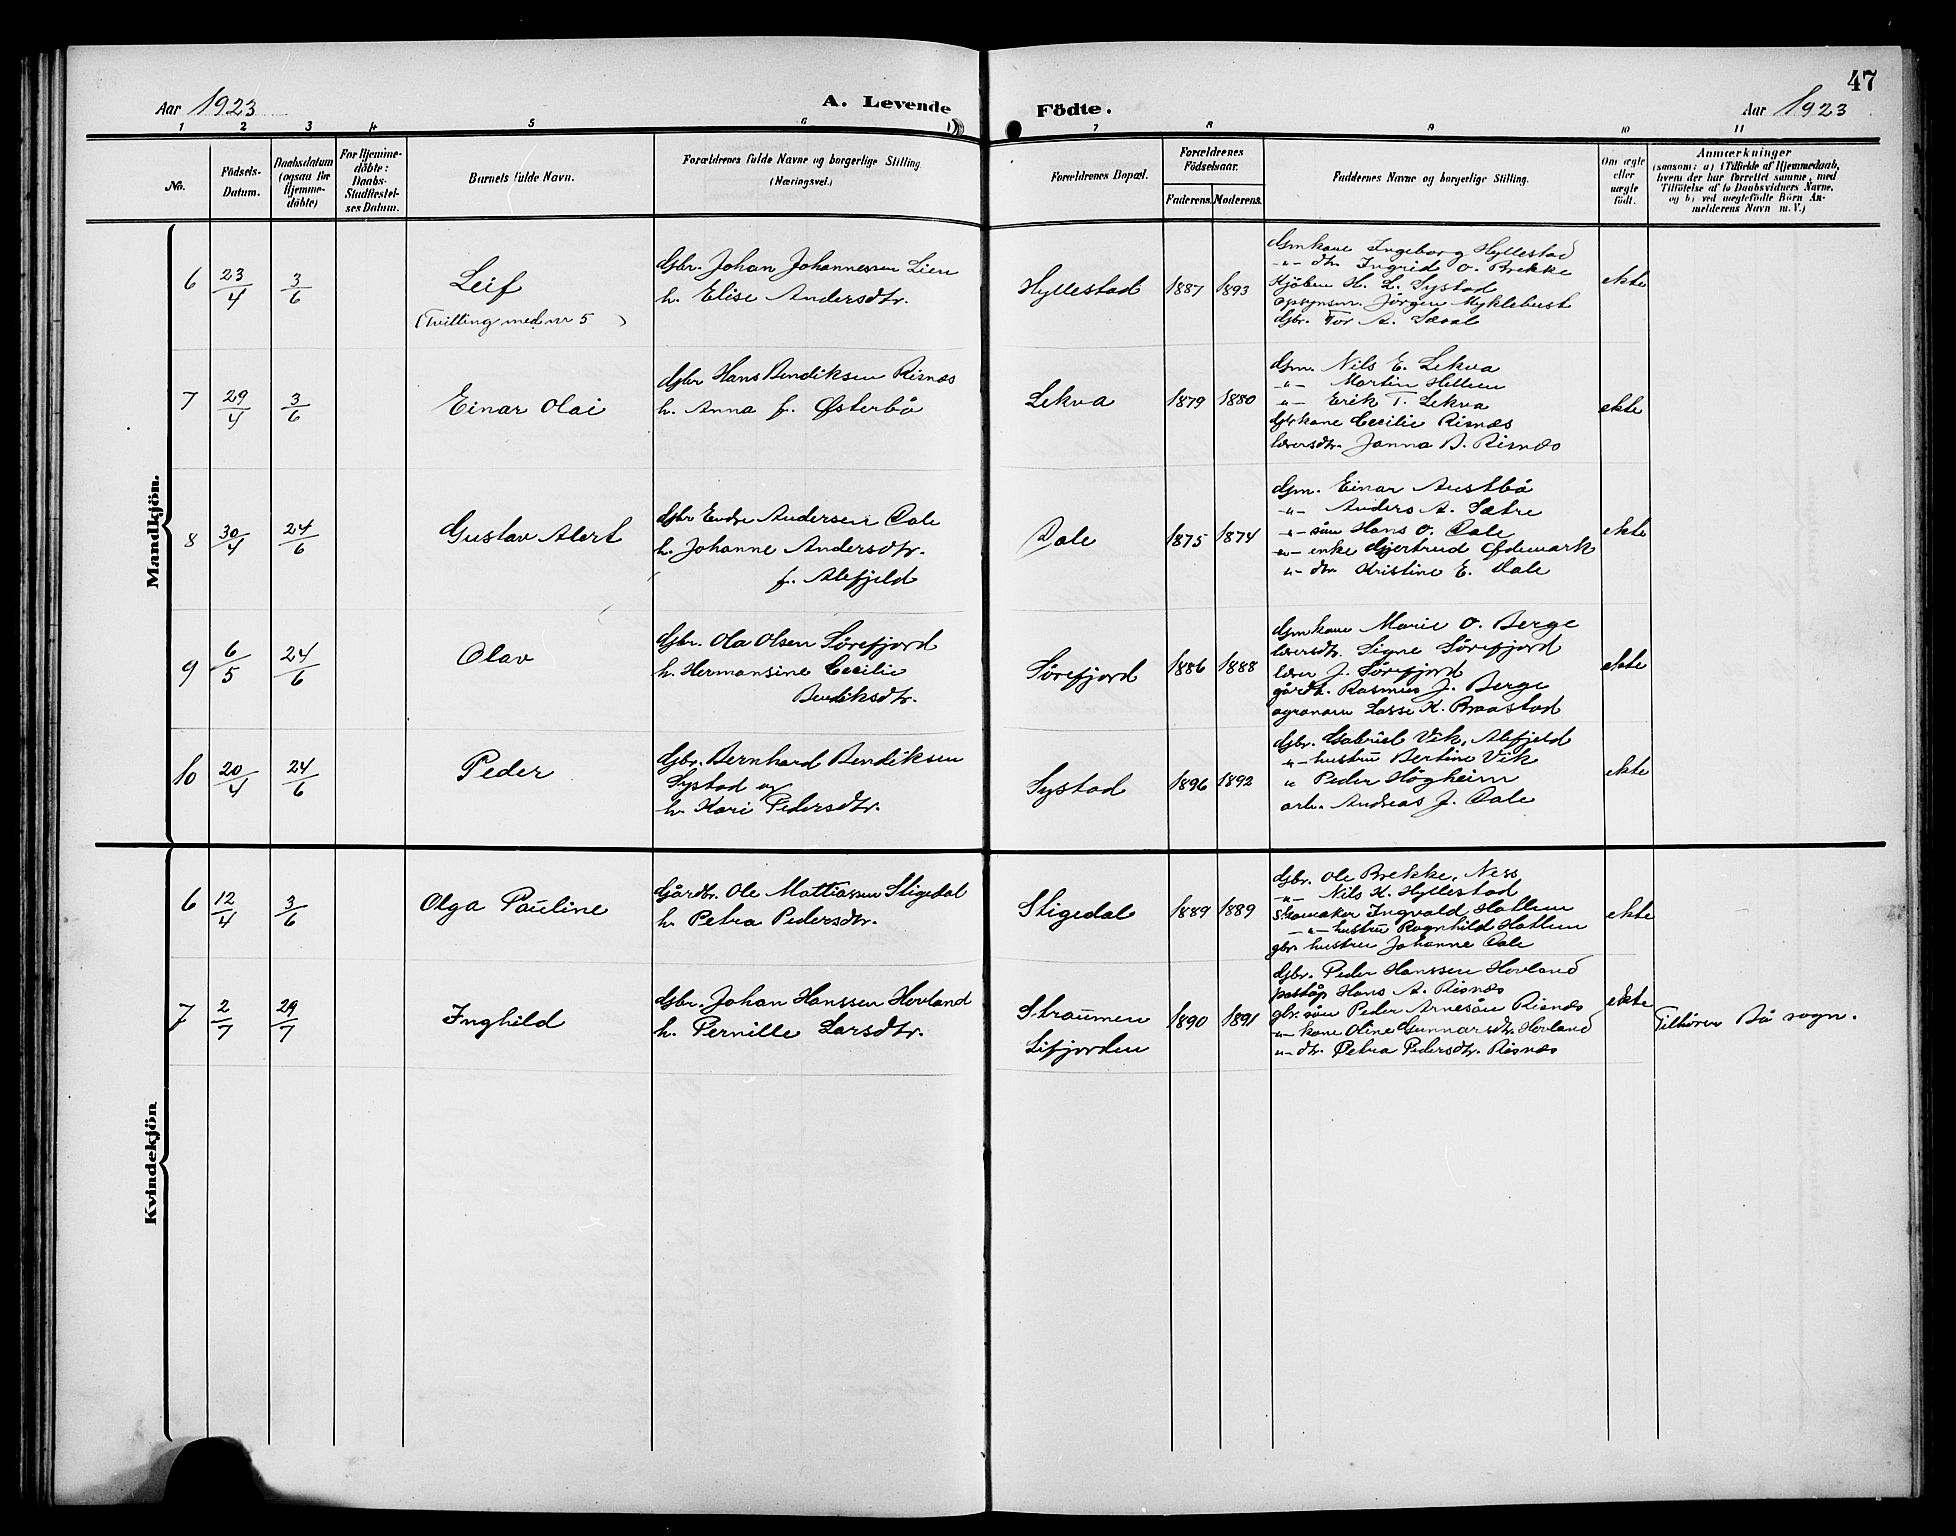 47
Aar 1923
A. Levende Födte.
Aar 1923
1 2 3 4 5 6 7 8 9 10 11
No.
Födsels-Datum.
Daabsdatum (ogsaa for Hjemmedöbte)
For Hjemmedöbte: Daabs-Stadfæstelses Datum.
Barnets fulde Navn.
Forældrenes fulde Navne og borgerlige Stilling (Næringsvei.)
Forældrenes Bopæl.
Forældrenes Födselsaar.
Faderens. Moderens.
Faddernes Navne og borgerlige Stilling.
Om ægte eller uægte födt.
Anmærkninger
(saasom: a) i Tilfælde af Hjemmedaab,
hvem der har forrettet samme, med
Tilföielse af to Daabsvidners Navne,
og b) ved uægtefödte Börn An-
melderens Navn m. V.)
Mandkjön.
6 23/4 3/6
Leif
(Tvilling med nr 5)
Gbr. Johan Johannessen Lien
h. Elise Andersdtr.
Hyllestad 1887 1893
Gmkone Ingeborg Hyllestad
-"- dtr. Ingrid O. Brekke
Kjöbm H. L. Systad
opsynsm. Jörgen Myklebust
Gbr. Tor A.
ekte
7 29/4 3/6
Einar Olai
Gbr Hans Bendiksen Risnæs
h. Anna f. Østerbö
Lekva 1879 1880
Gm. Nils E. Lekva
-"- Martin Hellem
-"- Erik T. Lekva
Gbrkone Cecilie Risnæs
lærersdtr. Janna B. Risnæs
ekte
8 30/4 24/6
Gustav Alert
Gbr Endre Andersen Dale
h. Johanne Andersdtr.
f. Alefjeld
Dale 1875 1874
Gm. Einar Austbö
-"- Anders A. Sætre
-"- sön Hans O. Dale
-"- enke Gjertrud Ødemark
-"- dtr Kristine E. Dale
ekte
9 6/5 24/6
Olav
Gbr. Ola Olsen Sörefjord
h. Hermansine Cecilie
Bendiksdtr.
Sörefjord 1886 1888
Gmkone Marie O. Berge
lærersdtr. Signe Sörefjord
lærer J. Sörefjord
gårdb. Rasmus J. Berge
agronom Lasse K. Braastad
ekte
10 20/4 24/6
Peder
Gbr. Bernhard Bendiksen
Systad og
h. Kari Pedersdtr.
Systad 1896 1892
Gbr. Gabriel Vik, Alefjeld
-"- hustru Bertine Vik
" Peder Högheim
arb. Andreas J. Dale
ekte
Kvindekjön
6 12/4 3/6
Olga Pauline
Gårdbr. Ole Mattiassen Stigedal
h. Petra Pedersdtr.
Stigedal 1889 1889
Gbr. Ole Brekke, Ness
-"- Nils K. Hyllestad
Skomaker Ingvald Hatlem
-"- hustru Ragnhild Hatlem
gbr. hustru Johanne Dale
ekte
7 2/7 29/7
Inghild
Gbr. Johan Hanssen Hovland
h. Pernille Larsdtr.
Straumen
Lifjorden
1890 1891
Gbr. Peder Hanssen Hovland
poståp Hans A. Risnæs
gbr. sön Peder Arnesön Risnæs
-"- kone Oline Gunnarsdtr. Hovland
-"- dtr. Petra Pedersdtr. Risnæs
ekte
Tilhörer Bö sogn.